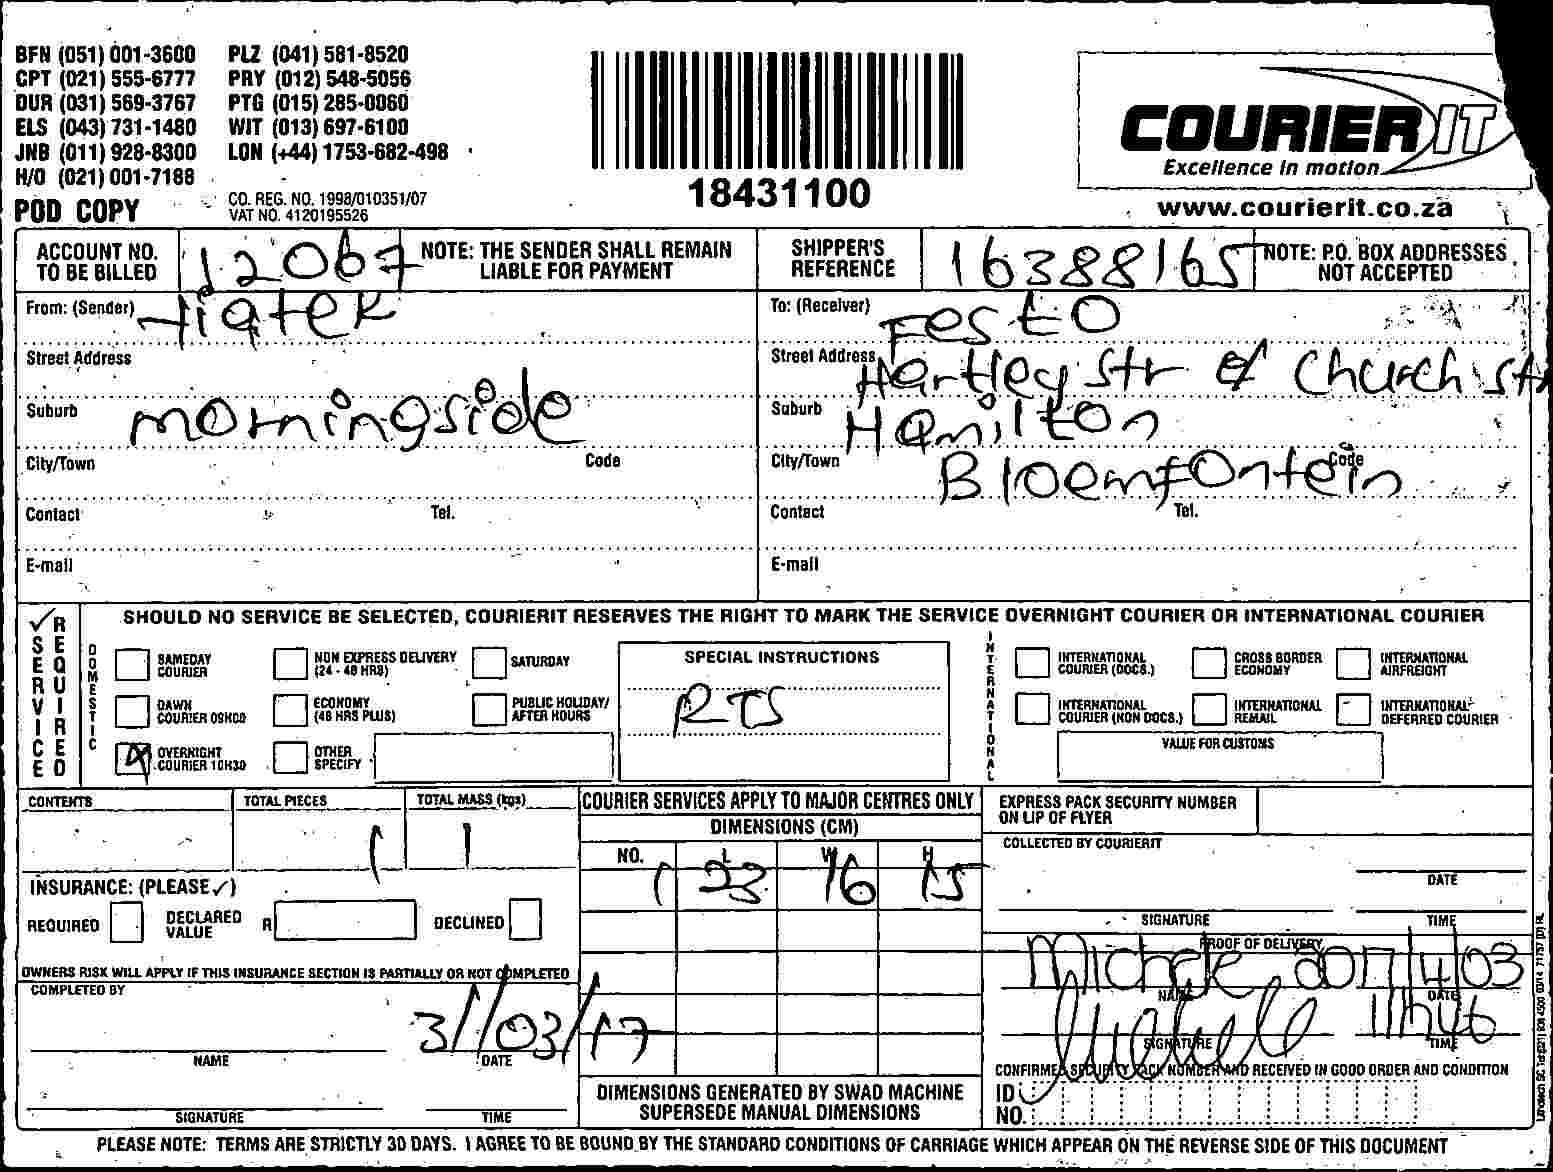 BFN (051) 001-3600 PLZ (041) 581-8520
CPT (021) 555-6777 PRY (012) 548-5056
DUR (031) 569-3767 PTG (015) 285-0060
ELS (043) 731-1480 WIT (013) 697-6100
JNB (011) 928-8300 LON (+44) 1753-682-498
H/O (021) 001-7188
POD COPY
CO. REG. NO. 1998/010351/07
VAT NO. 4120195526
18431100
COURIER IT
Excellence in motion
www.courierit.co.za
ACCOUNT NO. TO BE BILLED 12067
NOTE: THE SENDER SHALL REMAIN LIABLE FOR PAYMENT
SHIPPER'S REFERENCE 16388165
NOTE: P.O. BOX ADDRESSES NOT ACCEPTED
From: (Sender) Hiqtek
Street Address
Suburb morningside
City/Town Code
Contact Tel.
E-mail
To: (Receiver) Festo
Street Address Hartley Str & Church str
Suburb Hamilton
City/Town Bloemfontein Code
Contact Tel.
E-mail
SERVICE REQUIRED
SHOULD NO SERVICE BE SELECTED, COURIERIT RESERVES THE RIGHT TO MARK THE SERVICE OVERNIGHT COURIER OR INTERNATIONAL COURIER
DOMESTIC
SAMEDAY COURIER
NON EXPRESS DELIVERY (24 - 48 HRS)
SATURDAY
DAWN COURIER 09H00
ECONOMY (48 HRS PLUS)
PUBLIC HOLIDAY/ AFTER HOURS
OVERNIGHT COURIER 10H30
OTHER SPECIFY
SPECIAL INSTRUCTIONS
RTS
INTERNATIONAL
INTERNATIONAL COURIER (DOCS.)
CROSS BORDER ECONOMY
INTERNATIONAL AIRFREIGHT
INTERNATIONAL COURIER (NON DOCS.)
INTERNATIONAL REMAIL
INTERNATIONAL DEFERRED COURIER
VALUE FOR CUSTOMS
CONTENTS
TOTAL PIECES 1
TOTAL MASS (kgs) 1
INSURANCE: (PLEASE ✓)
REQUIRED DECLARED VALUE R DECLINED
OWNERS RISK WILL APPLY IF THIS INSURANCE SECTION IS PARTIALLY OR NOT COMPLETED
COMPLETED BY
31/03/17
NAME DATE
SIGNATURE TIME
COURIER SERVICES APPLY TO MAJOR CENTRES ONLY
DIMENSIONS (CM)
NO. L W H
1 23 16 15
DIMENSIONS GENERATED BY SWAD MACHINE SUPERSEDE MANUAL DIMENSIONS
EXPRESS PACK SECURITY NUMBER ON LIP OF FLYER
COLLECTED BY COURIERIT
DATE
SIGNATURE TIME
PROOF OF DELIVERY
Michele 2017/4/03
NAME DATE
11h46
SIGNATURE TIME
CONFIRMED SECURITY PACK NUMBER AND RECEIVED IN GOOD ORDER AND CONDITION
ID NO.
PLEASE NOTE: TERMS ARE STRICTLY 30 DAYS. I AGREE TO BE BOUND BY THE STANDARD CONDITIONS OF CARRIAGE WHICH APPEAR ON THE REVERSE SIDE OF THIS DOCUMENT